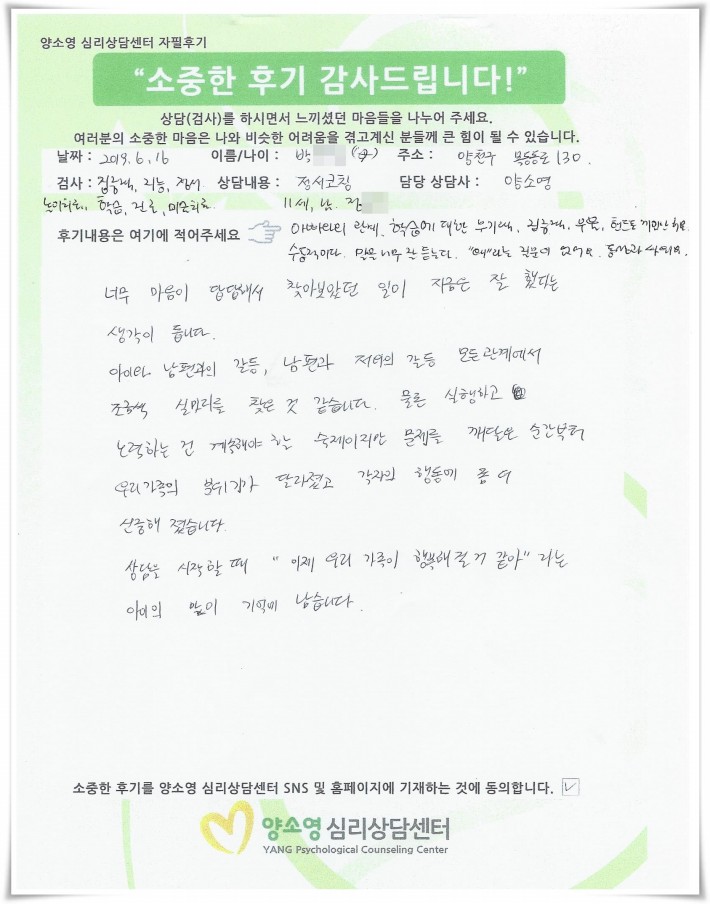 양소영 심리상담센터 자필후기
“소중한 후기 감사드립니다!”
상담(검사)를 하시면서 느끼셨던 마음들을 나누어 주세요.
여러분의 소중한 마음은 나와 비슷한 어려움을 겪고계신 분들께 큰 힘이 될 수 있습니다.
날짜 : 2019. 6. 16 이름/나이 : 박 주소 : 양천구 목동동로 130.
검사 : 집중력, 지능, 정서 상담내용 : 정서코칭 담당 상담사 : 양소영
놀이치료, 학습, 진로, 미술치료 11세, 남. 전
후기내용은 여기에 적어주세요 아빠와의 관계, 학습에 대한 무기력, 집중력, 우울,
수동적이다. 말을 너무 안 듣는다. 없어요. 동생과 싸워요.
너무 마음이 답답해서 찾아보았던 일이 지금은 잘 했다는
생각이 듭니다.
아이와 남편과의 갈등, 남편과 저와의 갈등 모든관계에서
조금씩 실마리를 찾은 것 같습니다. 물론 실행하고
노력하는 건 계속해야 하는 숙제이지만 문제를 깨달은 순간부터
우리가족의 분위기가 달라졌고 각자의 행동에 좀 더
신중해 졌습니다.
상담을 시작할 때 " 이제 우리 가족이 행복해질거 같아" 라는
아이의 말이 기억에 남습니다.
소중한 후기를 양소영 심리상담센터 SNS 및 홈페이지에 기재하는 것에 동의합니다. ✓
양소영 심리상담센터
YANG Psychological Counseling Center